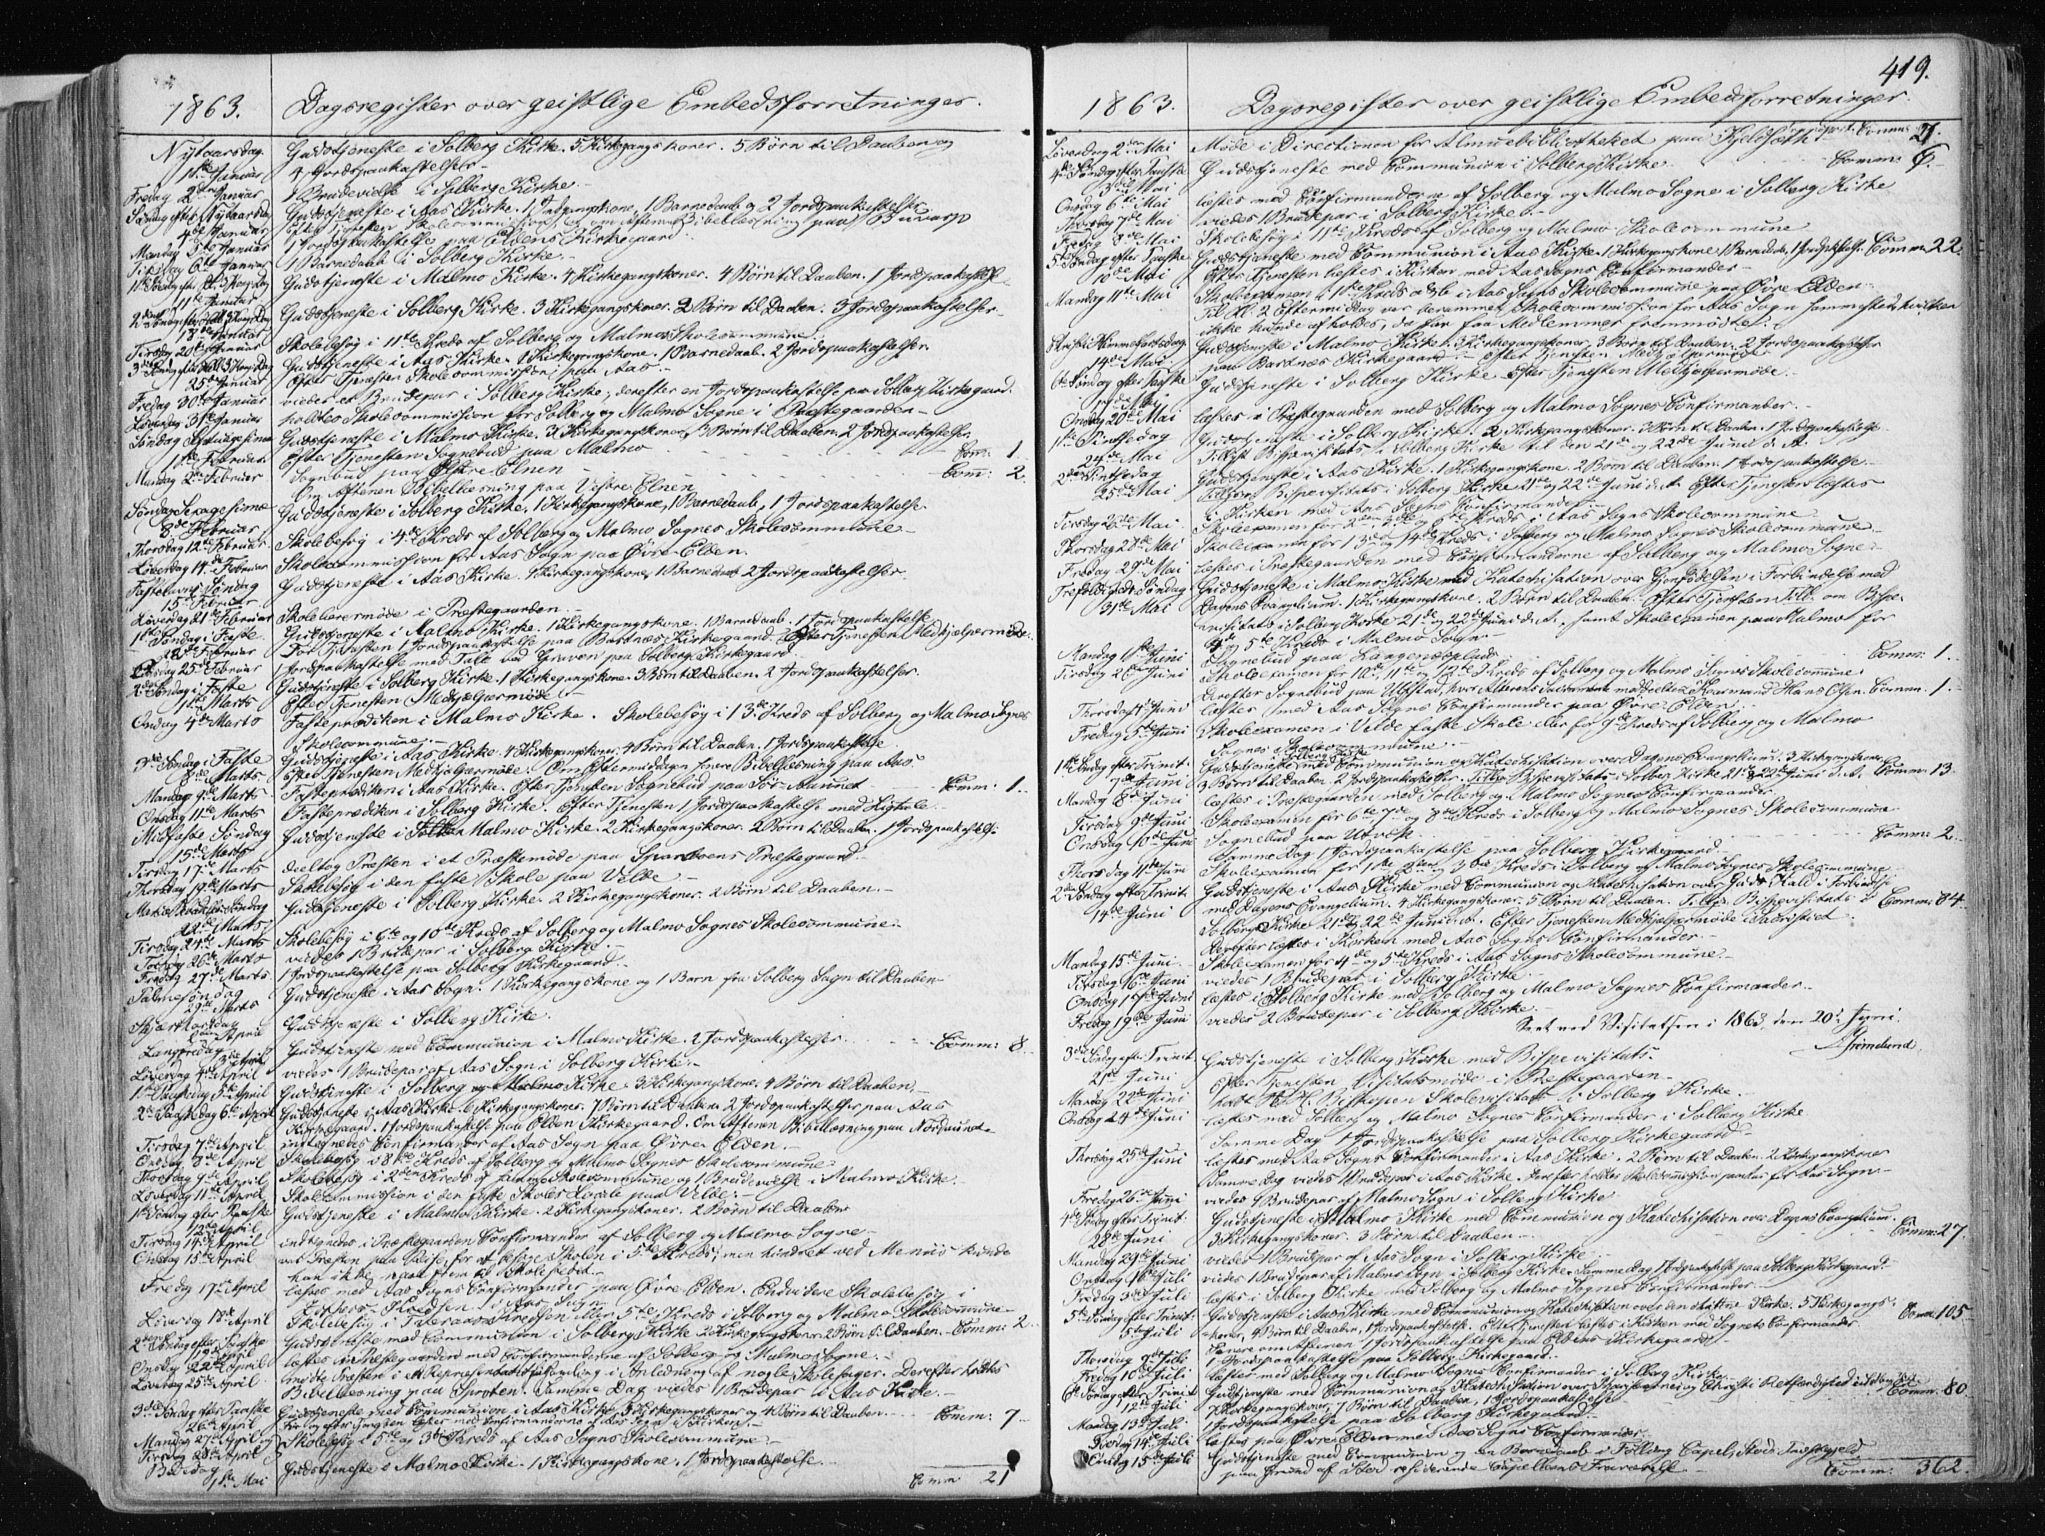 1863.
Dagsregister over geistlige Embedsforretninger.
Nytaarsdag. Gudstjeneste i Solberg Kirke. 5 Kirkegangskoner. 5 Børn til Daaben og
1ste Januar 4 Jordspaakastelser.
Fredag 2den Januar 1 Brudevielse i Solberg Kirke.
Søndag efter Nytaarsdag Gudstjeneste i Aas Kirke. 1 Barnedaab og 2 Jordspaakastelser
4de Januar Efter Tjenesten Skolecommission, om Aftenen Bibellæsning paa Buvarp
Mandag 5te Januar 1 Jordspaakastelse paa Eldens Kirkegaard.
Tirsdag 6te Januar 1 Barnedaab i Solberg Kirke.
11te Januar Gudstjeneste i Malmo Kirke. 4 Kirkegangskoner. 4 Børn til Daaben. 1 Jordspaakastelse.
18de Januar Gudstjeneste i Solberg Kirke. 3 Kirkegangskoner. 2 Børn til Daaben. 3 Jordspaakastelser.
Tirsdag 20de Januar Skolebesøg i 11te Kreds af Solberg og Malmo Skolecommune.
Gudstjeneste i Aas Kirke. 1 Kirkegangskone. 1 Barnedaab. 2 Jordspaakastelser.
25de Januar Efter Tjenesten Skolecommission paa Aas.
Fredag 30te Januar viedes et Brudepar i Solberg Kirke, derefter en Jordspaakastelse paa Solberg Kirkegaard.
Løverdag 31te Januar holdtes Skolecommission for Solberg og Malmo Sogne i Præstegaarden.
Søndag Septuagesima Gudstjeneste i Malmo Kirke. 3 Kirkegangskoner, 3 Børn til Daaben. 2 Jordspaakastelser
1ste Februar Efter Tjenesten Sognebud paa Malmo Com: 1.
Mandag 2den Februar Sognebud paa Østre Elnen Com: 2.
Om Aftenen Bibellæsning paa Vestre Elnen
Søndag Sexagesima Gudstjeneste i Solberg Kirke. 1 Kirkegangskone, 1 Barnedaab, 1 Jordspaakastelse.
8de Februar
Thorsdag 12te Februar Skolebesøg i 4de Kreds af Solberg og Malmo Sognes Skolecommune.
Løverdag 14de Februar Skolecommission for Aas Sogn paa Øvre Elden.
Fastelavns Søndag Gudstjeneste i Aas Kirke. 1 Kirkegangskone, 1 Barnedaab 2 Jordspaakastelser.
15de Februar
Løverdag 21de Februar Skolelærermøde i Præstegaarden.
1ste Søndag i Faste Gudstjeneste i Malmo Kirke. 1 Kirkegangskone. 1 Barnedaab. 1 Jordspaakastelse
Februar Før Tjenesten 1 Jordspaakastelse paa Bartnes Kirkegaard. Efter Tjenesten Medhjelpermøde.
Onsdag 25de Februar 1 Jordspaakastelse med Tale ved Graven paa Solberg Kirkegaard.
2den Søndag i Faste Gudstjeneste i Solberg Kirke. 1 Kirkegangskone. 3 Børn til Daaben. 2 Jordspaakastelser.
1ste Marts Efter Tjenesten Medhjelpermøde.
Onsdag 4de Marts Fasteprædiken i Malmo Kirke. Skolebesøg i 13de Kreds af Solberg og Malmo Sognes
Skolecommune.
3die Søndag i Faste Gudstjeneste i Aas Kirke. 4 Kirkegangskoner, 4 Børn til Daaben. 1 Jordspaakastelse
8de Marts Efter Tjenesten Medhjelpermøde. Om Eftermiddagen Bibellæsning paa Aas
Mandag 9de Marts Fasteprædiken i Aas Kirke. Efter Tjenesten Sognebud paa Comm: 1.
Onsdag 11te Marts Fasteprædiken i Solberg Kirke. Efter Tjenesten 1 Jordspaakastelse med Ligtale.
Midfaste Søndag Gudstjeneste i Malmo Kirke. 2 Kirkegangskoner. 2 Børn til Daaben. 1 Jordspaakastelse
15de Marts
Tirsdag 17de Marts deeltog Præsten i et Præstemøde paa Sparboens Præstegaard.
Thorsdag 19de Marts Skolebesøg i den faste Skole paa Velde.
Gudstjeneste i Solberg Kirke. 2 Kirkegangskoner. 2 Børn til Daaben.
22de Marts
Tirsdag 24de Marts Skolebesøg i 6te og 10de Kreds af Solberg og Malmo Sognes Skolecommune.
26de Marts viedes 1 Brudepar i Solberg Kirke.
Fredag 27de Marts 1 Jordspaakastelse paa Solberg Kirkegaard.
Palmesøndag Gudstjeneste i Aas Sogn. 1 Kirkegangskone og 1 Barn fra Solberg Sogn til Daaben
29de Marts
Skjærthorsdag Gudstjeneste i Solberg Kirke.
2den April
Langfredag Gudstjeneste med Communion i Malmo Kirke. 2 Jordspaakastelser. Comm: 8.
3die April
Løverdag 4de April viedes 1 Brudepar af Aas Sogn i Solberg Kirke.
1ste Paaskedag 5te April Gudstjeneste i Solberg Kirke. 3 Kirkegangskoner. 4 Børn til Daaben.
2den Paaskedag 6te April Gudstjeneste i Aas Kirke. 6 Kirkegangskoner. 7 Børn til Daaben 2 Jordspaakastelser paa Aas
Kirkegaard. 1 Jordspaakastelse paa Elden Kirkegaard. Om Aftenen Bibellæsning paa
Tirsdag 7de April indtegnedes Confirmander af Aas Sogn paa Øvre Elden.
Onsdag 8de April Skolebesøg i 8de Kreds af Solberg og Malmo Sognes Skolecommune
Thorsdag 9de April Skolebesøg i 2den Kreds af Skolecommune og 1 Brudevielse i Malmo Kirke.
Løverdag 11te April Skolecommission i den faste Skoles Locale paa Velde.
1ste Søndag efter Paaske Gudstjeneste i Malmo Kirke. 2 Kirkegangskoner. 2 Børn til Daaben
12te April
Tirsdag 14de April indtegnedes i Præstegaarden Confirmander af Solberg og Malmo Sogne.
Onsdag 15de April var Præsten paa Reise for at besøge Skolen i 5te Kreds, men hindret ved Menois kunde
han ikke naae frem til Skolestedet.
Fredag 17de April læstes med Aas Sogns Confirmander paa Øvre Elden. Endvidere Skolebesøg i
Kredsen i Aas Sogn.
Løverdag 18de April Skolebesøg i Kredsen eller 5te Kreds i Solberg og Malmo Skolecommune.
2den Søndag efter Paaske Gudstjeneste med Communion i Solberg Kirke 2 Kirkegangskoner 2 Børn til Daaben. Comm: 2.
19de April
Onsdag 22de April læstes i Præstegaarden med Confirmanderne af Solberg og Malmo Sogne.
Løverdag 25de April mødte Præsten i i Anledning af nogle Skolesager. Derefter holdtes
Bibellæsning paa Sprøten. Samme Dag viedes 1 Brudepar i Aas Kirke.
3die Søndag efter Paaske Gudstjeneste med Communion i Aas Kirke, 3 Kirkegangskoner og 4 Børn til Daaben. Comm: 7.
26de April
Mandag 27de April og Skolebesøg i 5te og 3die Kreds af Aas Sogns Skolecommune.
Tirsdag 28de April
Bededag Gudstjeneste i Malmo Kirke. 1 Kirkegangskone. 1 Jordspaakastelse.
1ste Mai
Comm 21
419.
1863.
Dagsregister over geistlige Embedsforretninger.
Comm: 21.
Løverdag 2den Mai Møde i Directionen for Almuebibliotheket paa Fjeldsæth
4de Søndag efter Paaske Gudstjeneste med Communion i Solberg Kirke Comm: 6.
3die Mai
Onsdag 6te Mai læstes med Confirmanderne af Solberg og Malmo Sogne i Solberg Kirke
Thorsdag 7de Mai viedes 1 Brudepar i Solberg Kirke.
Fredag 8de Mai Skolebesøg i 11te Kreds af Solberg og Malmo Skolecommune
5te Søndag efter Paaske Gudstjeneste med Communion i Aas Kirke. 1 Kirkegangskone 1 Barnedaab, 1 Jordpkastelse. Comm: 22.
10de Mai Efter Tjenesten læstes i Kirken med Aas Sogns Confirmander.
Mandag 11te Mai Skoleexamen i 1ste Kreds i Aas Sogns Skolecommune paa Øvre Elden.
Til Kl. 2 Eftermiddag var berammet Skolecommission for Aas Sogn sammesteds, hvilken
ikke kunde afholdes, da for faa Medlemmer fremmødte.
Christi Himmelfartsdag Gudstjeneste i Malmo Kirke. 3 Kirkegangskoner, 3 Børn til Daaben. 2 Jordspaakastelser
14de Mai paa Bartnes Kirkegaard. Efter Tjenesten Medhjelpermøde
6te Søndag efter Paaske Gudstjeneste i Solberg Kirke. Efter Tjenesten Medhjelpermøde.
17de Mai
Onsdag 20de Mai læstes i Præstegaarden med Solberg og Malmo Sognes Confirmander.
1ste Pintsedag Gudstjeneste i Solberg Kirke. 2 Kirkegangskoner. 3 Børn til Daaben. 1 Jordspaakastelse.
24de Mai Tillyst Bispevisitats i Solberg Kirke til den 21de og 22de Juni d. A.
2den Pintsedag Gudstjeneste i Aas Kirke. 1 Kirkegangskone. 2 Børn til Daaben. 1 Jordspaakastelse.
25de Mai Tillyst Bispevisitats i Solberg Kirke 21de og 22de Juni d. A. Efter Tjenesten læstes
i Kirken med Aas Sogns Confirmander.
26de Mai Skoleexamen for 2den og 6te Kreds i Aas Sogns Skolecommune
Thorsdag 28de Mai Skoleexamen for 13de og 14de Kreds i Solberg og Malmo Sognes Skolecommune
Fredag 29de Mai læstes i Præstegaarden med Confirmanderne af Solberg og Malmo Sogne.
Trefoldigheds Søndag Gudstjeneste i Malmo Kirke med Katechisation over Gjenfødelsen i Forbindelse med
31te Mai Dagens Evangelium. 1 Kirkegangskone. 2 Børn til Daaben. Efter Tjenesten Till: om Bispe
visitats i Solberg Kirke 21de og 22de Juni d. A., samt Skoleexamen paa Malmo for
4de og 5te Kreds i Malmo Sogn.
Mandag 1ste Juni Sognebud paa Comm: 1.
Tirsdag 2den Juni Skoleexamen for 10de, 11te og 12te Kreds af Solberg og Malmo Sognes Skolecommune.
Derefter Sognebud paa Utstad, hvor Alterens Sacramente meddeeltes Kaarmand Hans Olsen. Comm: 1.
Thorsdag 4de Juni læstes med Aas Sogns Confirmander paa Øvre Elden.
Fredag 5te Juni Skoleexamen i Velde faste Skole for 9de Kreds af Solberg og Malmo
Sognes Skolecommune.
1ste Søndag efter Trinit: Gudstjeneste med Communion og Katechisation over Dagens Evangelium. 3 Kirkegangskoner.
7de Juni 3 Børn til Daaben 2 Jordspaakastelser. Tillyst Bispevisitats i Solberg Kirke 21de og 22de Juni d. A. Comm: 13.
Mandag 8de Juni læstes i Præstegaarden med Solberg og Malmo Sognes Confirmander.
Tirsdag 9de Juni Skoleexamen for 6te 7de og 8de Kreds i Solberg og Malmo Sognes Skolecommune.
Onsdag 10de Juni Sognebud paa Utvik. Comm: 2.
Samme Dag 1 Jordspaakastelse paa Solberg Kirkegaard.
Thorsdag 11te Juni Skoleexamen for 1ste 2den og 3die Kreds i Solberg og Malmo Sognes Skolecommune
2den Søndag efter Trinit: Gudstjeneste i Aas Kirke med Communion og Katechisation over Guds Kald i Forbindelse
14de Juni med Dagens Evangelium. 4 Kirkegangskoner. 5 Børn til Daaben. Tillyst Bispevisitats i Comm: 84.
Solberg Kirke 21de og 22de Juni d. A. Efter Tjenesten Medhjelpermøde i Sacristiet.
Derefter læstes i Kirken med Aas Sogns Confirmander.
Mandag 15de Juni Skoleexamen for 4de og 5te Kreds i Aas Sogns Skolecommune.
Tirsdag 16de Juni viedes 1 Brudepar i Solberg Kirke.
Onsdag 17de Juni læstes i Solberg Kirke med Solberg og Malmo Sognes Confirmander.
Fredag 19de Juni viedes 2 Brudepar i Solberg Kirke.
Seet ved Visitatsen i 1863, den 20de Juni.
3die Søndag efter Trinit: Gudstjeneste i Solberg Kirke med Bispevisitats.
21de Juni Efter Tjenesten Visitatsmøde i Præstegaarden.
Mandag 22de Juni holdt H. H. Biskopen Skolevisitats i Solberg Kirke.
Onsdag 24de Juni læstes med Solberg og Malmo Sognes Confirmander i Solberg Kirke
Samme Dag 1 Jordspaakastelse paa Solberg Kirkegaard
Thorsdag 25de Juni læstes med Aas Sogns Confirmander i Aas Kirke. 2 Børn til Daaben. 2 Kirkegangskoner
Samme Dag viedes 1 Brudepar i Aas Kirke. Derefter holdtes Skolecommission for Aas Sogn.
Fredag 26de Juni viedes 1 Brudepar af Malmo Sogn i Solberg Kirke
4de Søndag efter Trinit: Gudstjeneste i Malmo Kirke med Communion og Katechisation over Dagens Evangelium.
28de Juni 3 Kirkegangskoner. 3 Børn til Daaben. Comm: 27.
Mandag 29de Juni viedes 1 Brudepar af Aas Sogn i Solberg Kirke
Onsdag 1ste Juli viedes 1 Brudepar af Malmo Sogn i Solberg Kirke. Samme Dag 1 Jordspaakastelse paa Solberg Kirkegaard.
Fredag 3die Juli læstes i Solberg Kirke med Solberg og Malmo Sognes Confirmander.
5te Søndag efter Trinit: Gudstjeneste i Aas Kirke med Communion og Katechisation over den christne Kirke. 5 Kirkegangs- Comm: 105.
5te Juli koner, 4 Børn til Daaben, 1 Jordspaakastelse. Efter Tjenesten læstes i Kirken med Sognets Confirmander.
Senere om Aftenen 1 Jordspaakastelse paa Eldens Kirkegaard
Thorsdag 9de Juli 1 Jordspaakastelse paa Solberg Kirkegaard.
Fredag 10de Juli læstes med Solberg og Malmo Sognes Confirmander i Solberg Kirke.
6te Søndag efter Trinit: Gudstjeneste med Communion og Katechisation over Comm: 80.
12te Juli 7 Kirkegangskoner, 7 Børn til Daaben, 1 Jordspaakastelse
Mandag 13de Juli 1 Jordspaakastelse paa Solberg Kirkegaard.
Tirsdag 14de Juli læstes paa Øvre Elden med Aas Sogns Confirmander.
Onsdag 15de Juli Gudstjeneste med Communion og en Barnedaab i Følling Capel, Stods Præstegjeld
paa Grund af Stod residerende Capellans Fraværelse Comm: 362.